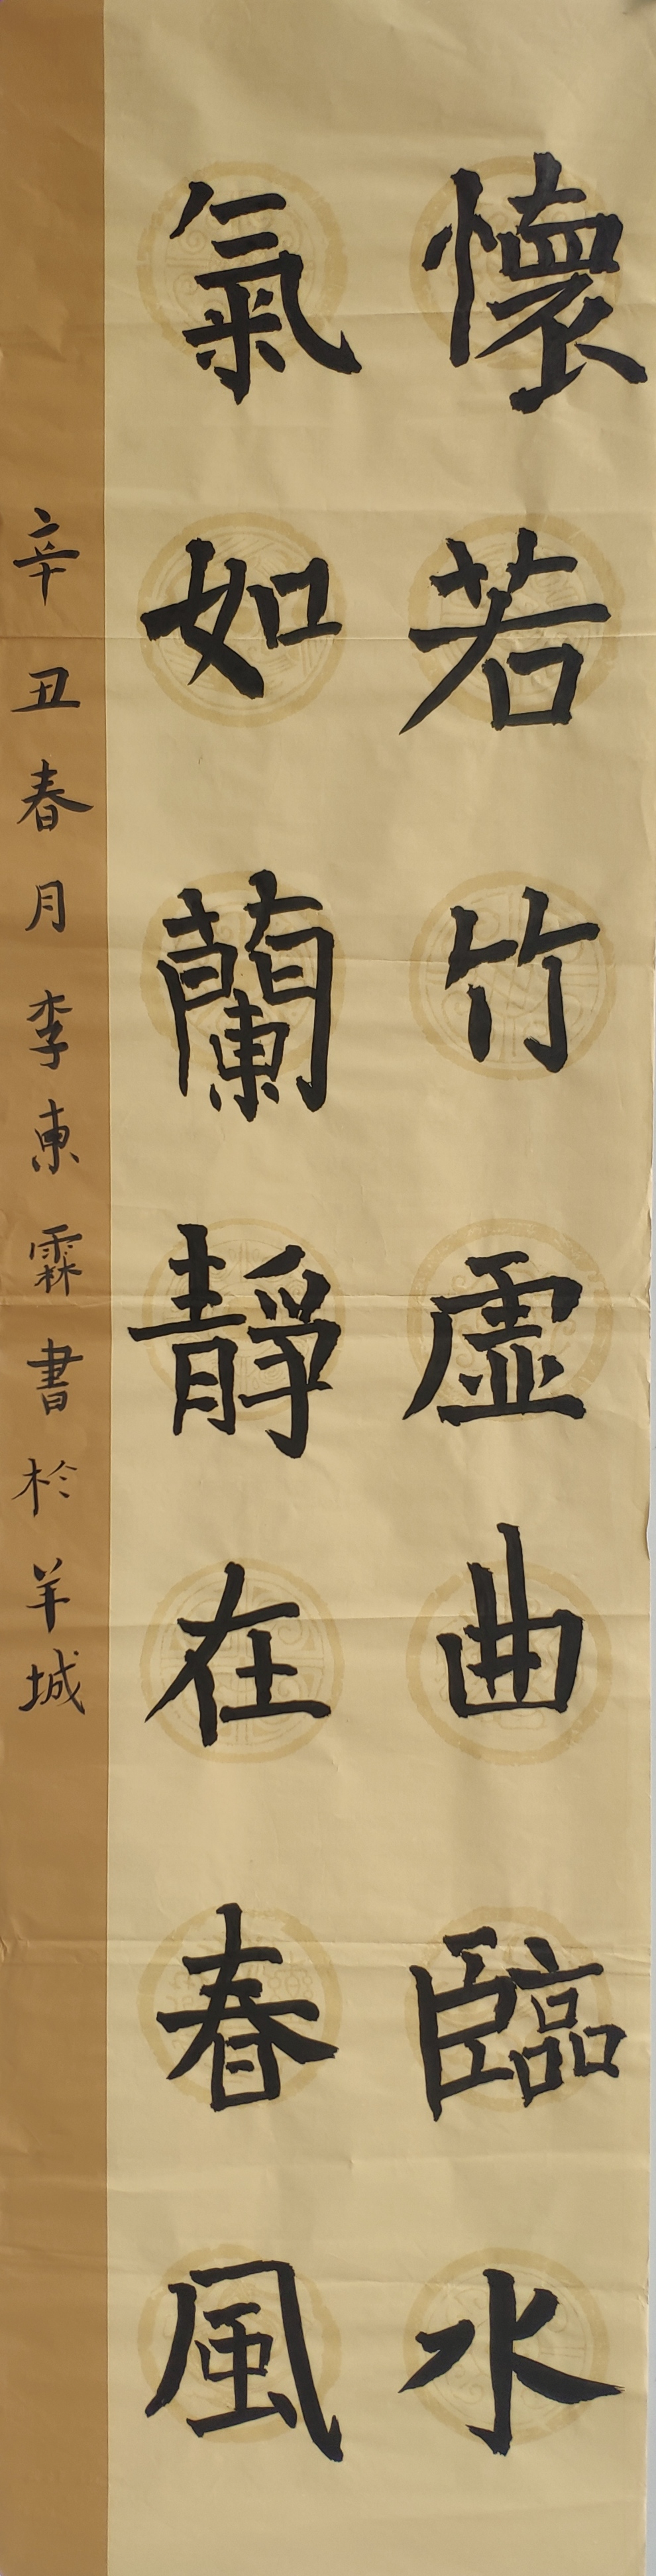 懷若竹虛曲臨水
氣如蘭靜在春風
辛丑春月李東霖書於羊城